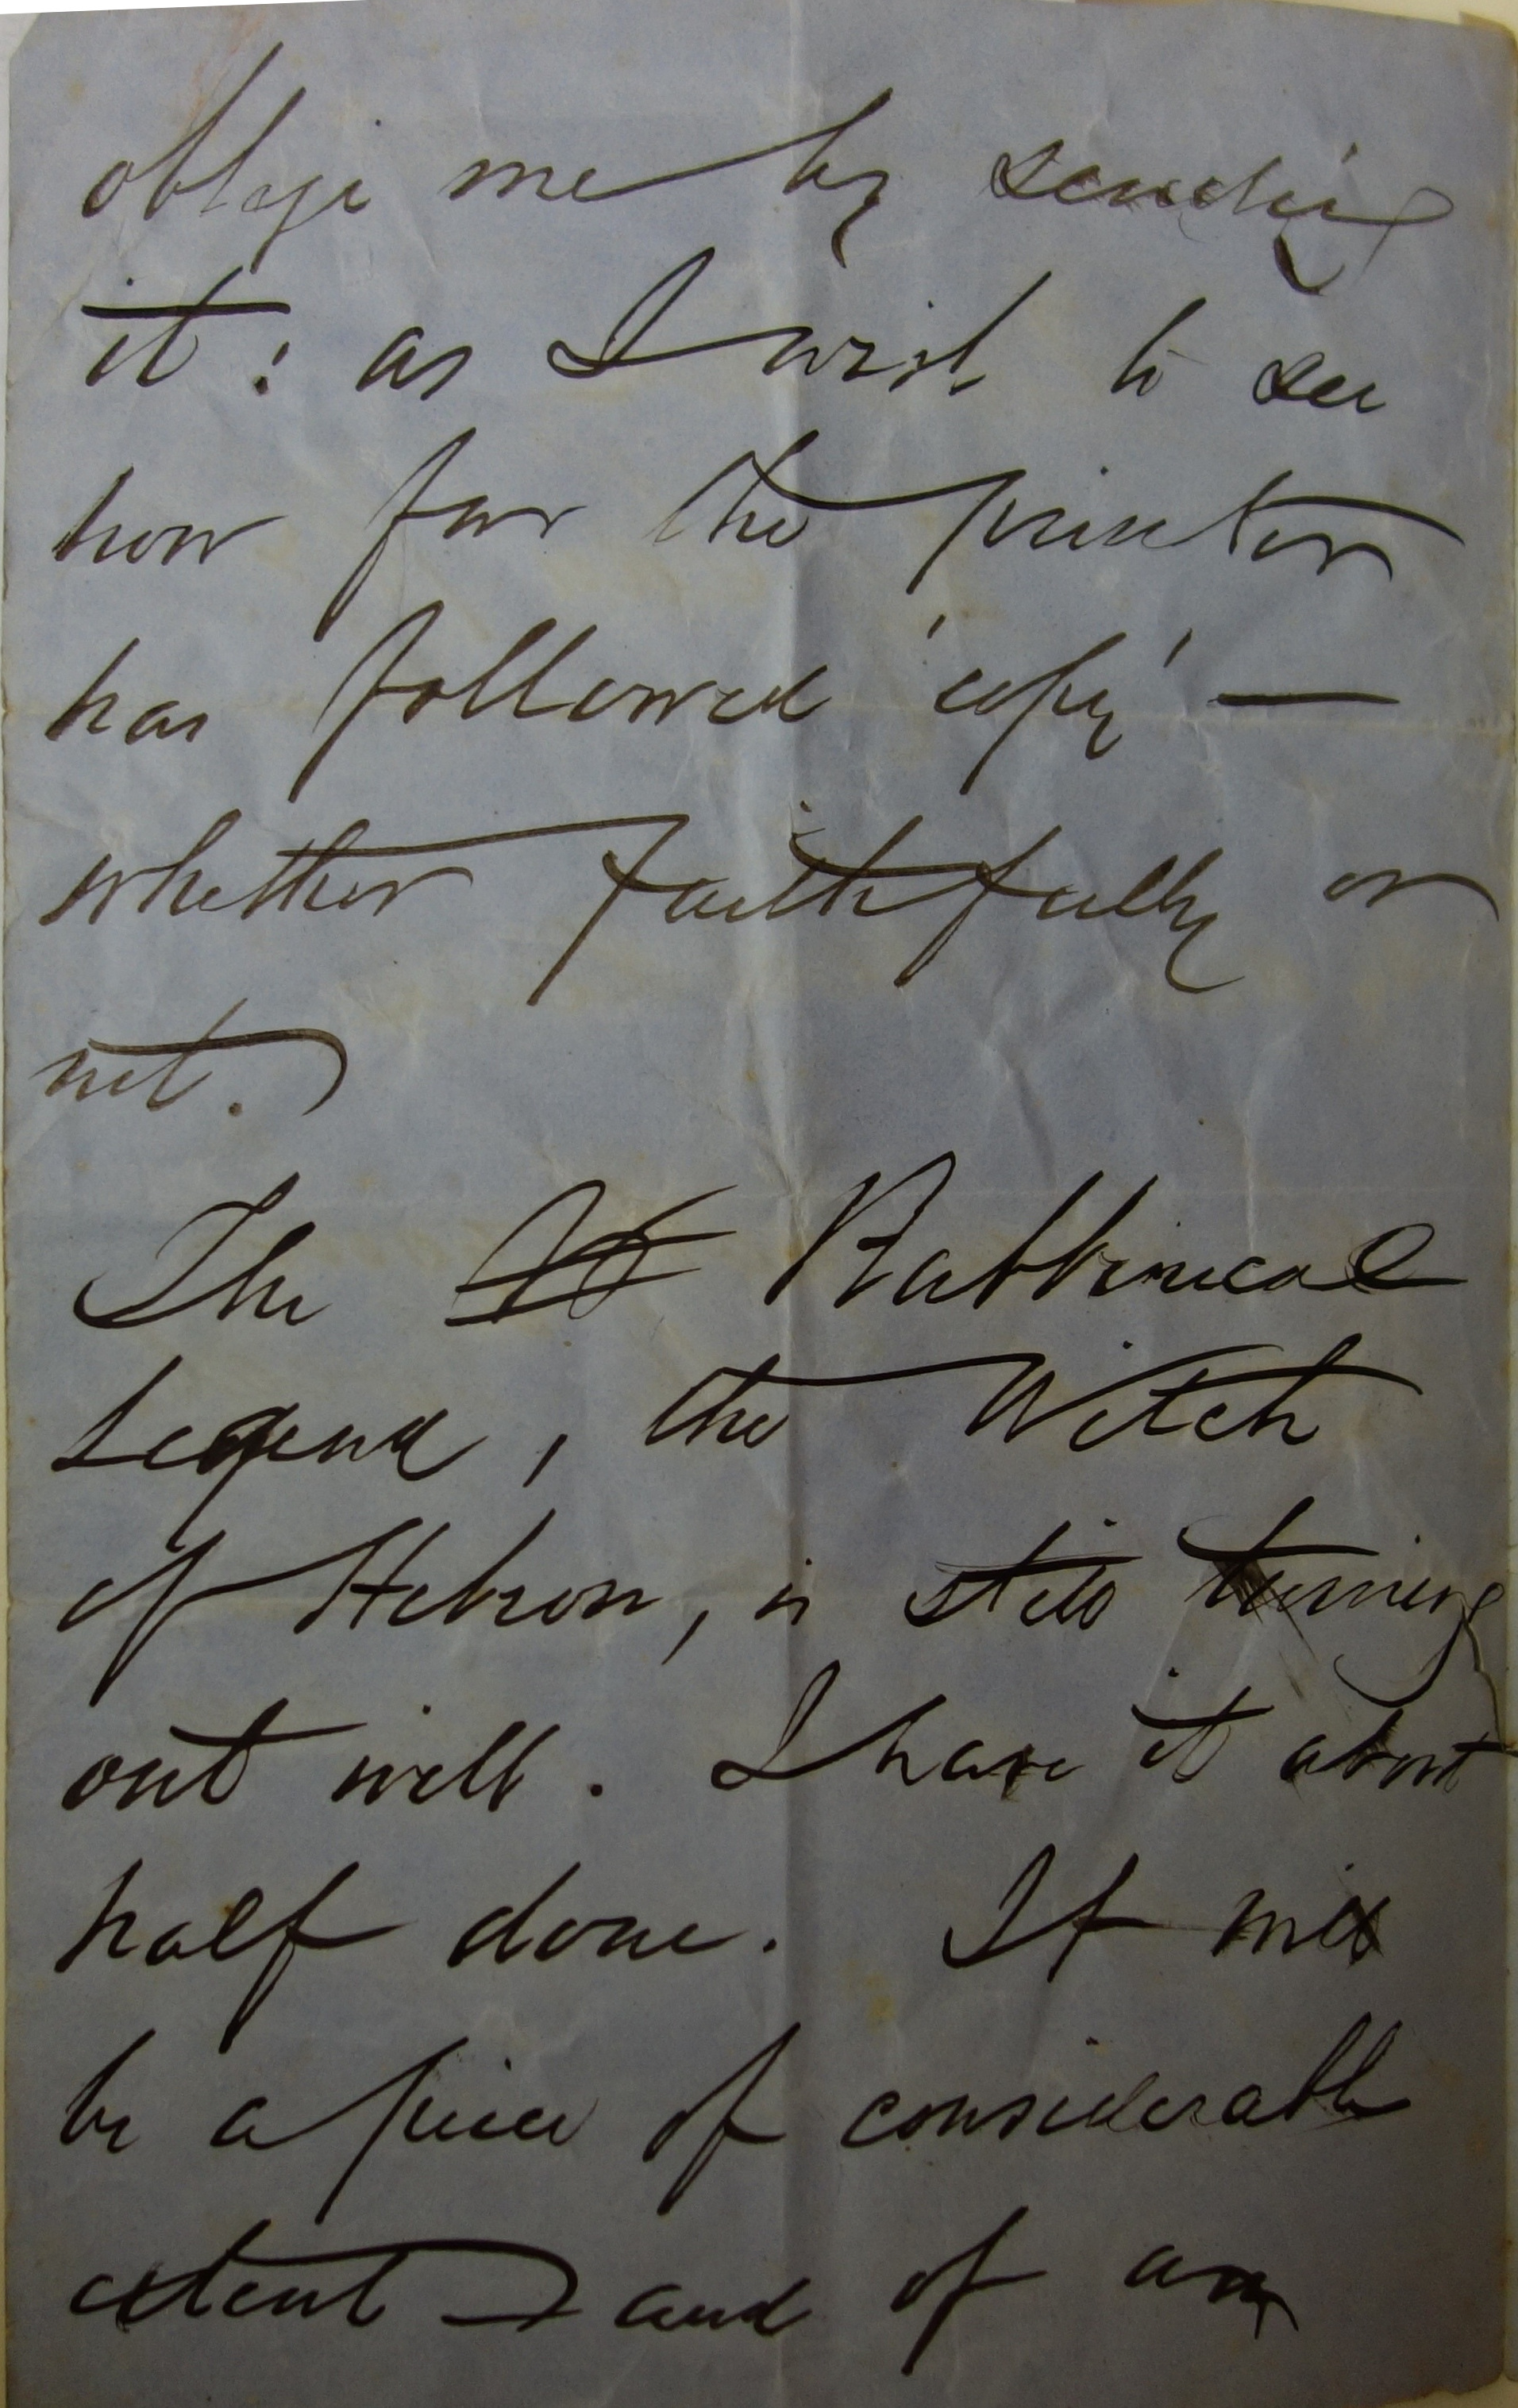 oblige me by sending
it: as I wish to see
how far the printer
has followed 'copy' —
whether faithfully or
not.
The Rabbinical
Legend, the Witch
of Hebron, is still turning
out well. I have it about
half done. It will
be a piece of considerable
extent — and of an